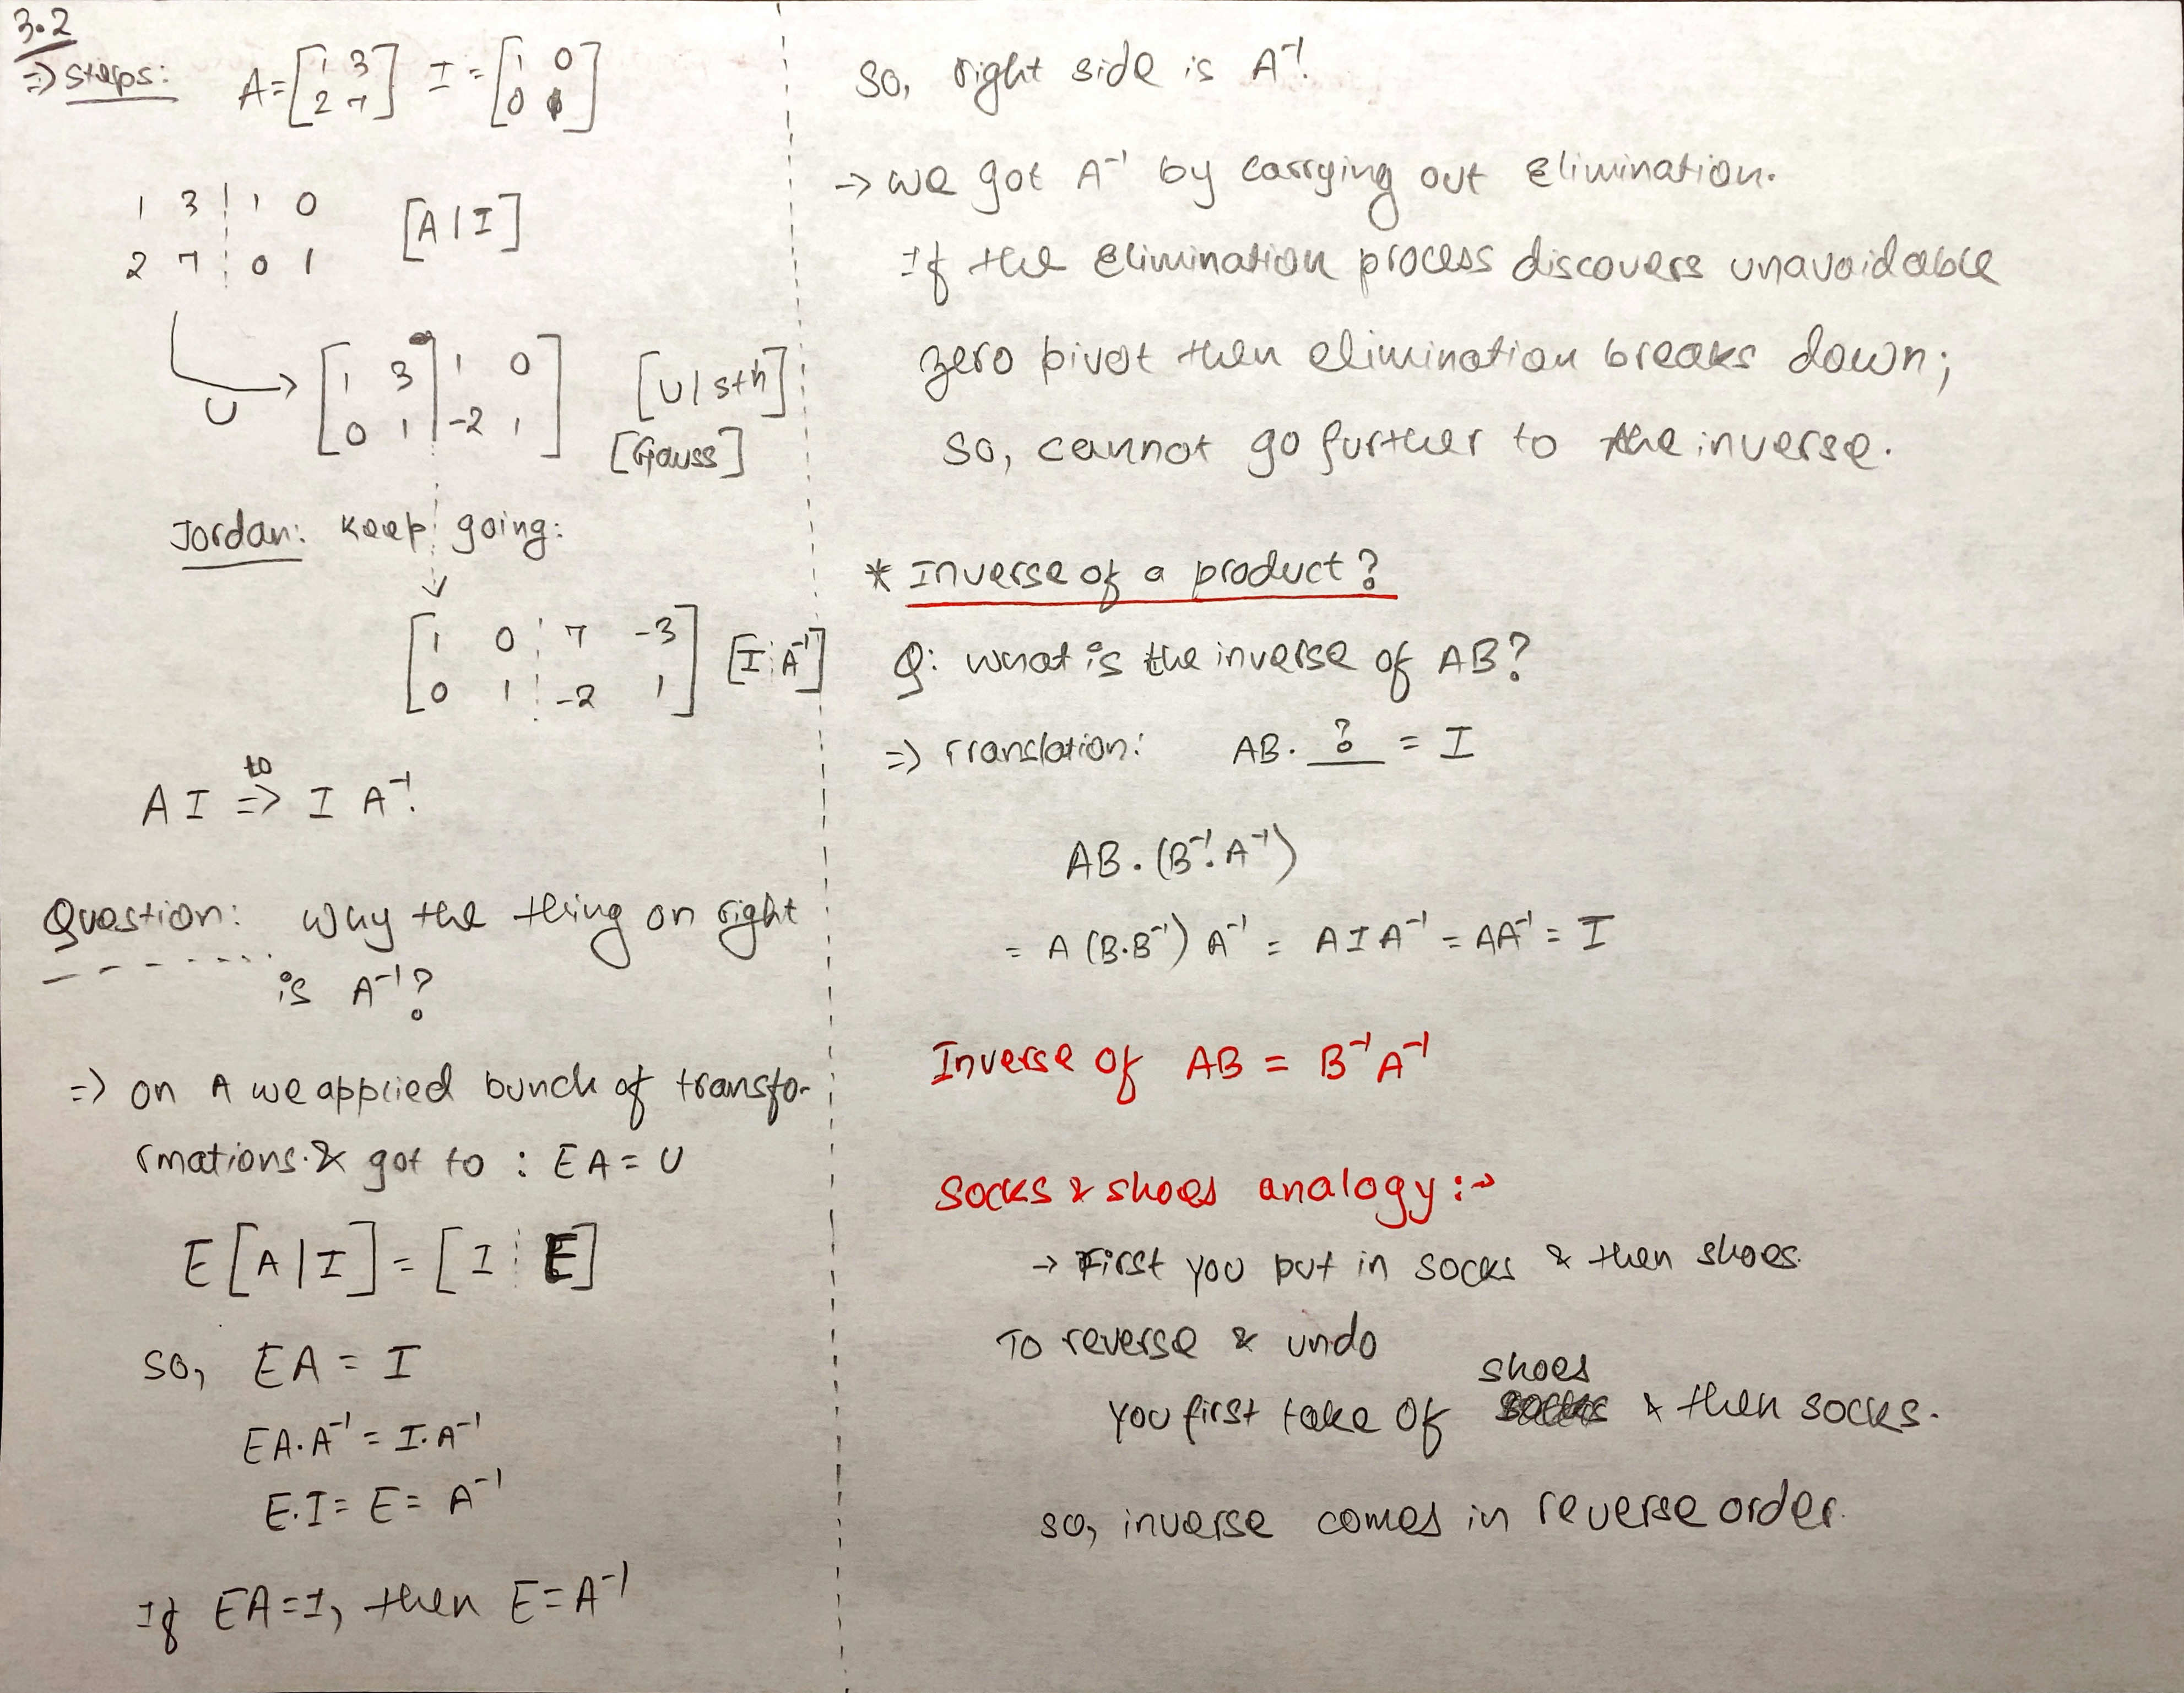 3.2
=> Steps: A = [1 3
2 7] I = [1 0
0 1]
1 3 | 1 0
2 7 | 0 1 [A | I]
U → [1 3 | 1 0
0 1 | -2 1] [U | sth]
[Gauss]
Jordan: Keep going:
[1 0 | 7 -3
0 1 | -2 1] [I | A⁻¹]
to
A I => I A⁻¹.
Question: Why the thing on right
is A⁻¹?
=> on A we applied bunch of transfo-
rmations & got to : EA = U
E [A | I] = [I | E]
So, EA = I
EA.A⁻¹ = I.A⁻¹
E.I = E = A⁻¹
If EA=I, then E=A⁻¹
So, right side is A⁻¹.
→ we got A⁻¹ by carrying out Elimination.
If the Elimination process discovers unavoidable
zero pivot then elimination breaks down;
so, cannot go further to the inverse.
* Inverse of a product?
Q: what is the inverse of AB?
=> Translation: AB. ? = I
AB.(B⁻¹.A⁻¹)
= A (B.B⁻¹) A⁻¹ = A I A⁻¹ = AA⁻¹ = I
Inverse of AB = B⁻¹A⁻¹
Socks & shoes analogy :→
→ First you put in socks & then shoes.
To reverse & undo
shoes
you first take of & then socks.
so, inverse comes in reverse order.